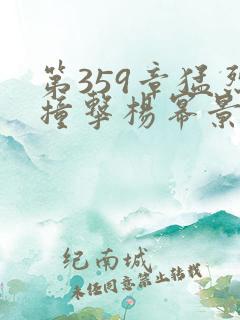 第359章猛烈
撞擊楊冪景
纪南城
未经同意禁止转载